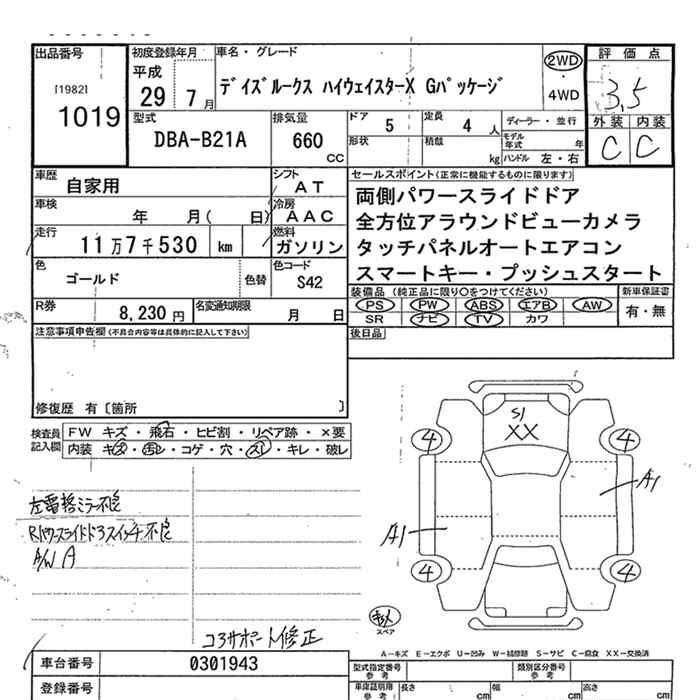 出品番号 初度登録年月 車名・グレード 2WD 評価点
[1982] 平成 ・ 3,5
1019 29 7月 デイズルークス ハイウェイスターX Gパッケージ 4WD 外装 内装
型式 排気量 ドア 定員 ディーラー・並行 C C
DBA-B21A 660 CC 5 4人 モデル年式 年
形状 積載 kg ハンドル 左・右
車歴 自家用 シフト AT セールスポイント(正常に機能するものに限ります)
車検 年 月( 日) 冷房 AAC 両側パワースライドドア
走行 11万7千530 km 燃料 ガソリン 全方位アラウンドビューカメラ
色 ゴールド 色替 色コード S42 タッチパネルオートエアコン
スマートキー・プッシュスタート
R券 8,230円 名変通知期限 月 日 装備品(純正品に限り○をつけてください) 新車保証書
PS PW ABS エアB AW 有・無
SR ナビ TV カワ
注意事項申告欄(不具合内容等は具体的に記入して下さい) 後日品
修復歴 有〔箇所 〕
検査員 FW キズ・飛石・ヒビ割・リペア跡・×要
記入欄 内装 キズ・汚レ・コゲ・穴・スレ・キレ・破レ
S1
XX
4 4
A1
A1
4 4
左電格ミラー不良
Rパワースライドドアスイッチ不良
A/W A
スペア
コアサポート修正
A－キズ E－エクボ U－凹み W－補修跡 S－サビ C－腐食 XX－交換済
車台番号 0301943 型式指定番号 参考 類別区分番号 参考
登録番号 車庫証明用 参考 長さ cm 幅 cm 高さ cm